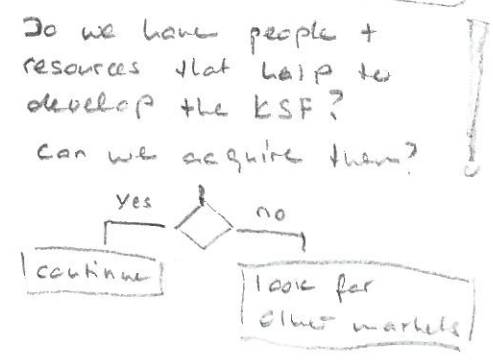 Do we have people +
resources that help to
develop the KSF?
can we acquire them?
yes
no
continue
look for
other markets